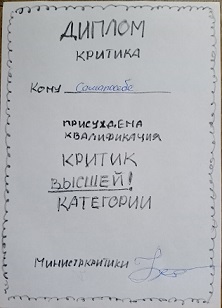 ДИПЛОМ
КРИТИКА
Кому Самарсебе
ПРИСУЖДЕНА
КВАЛИФИКАЦИЯ
КРИТИК
ВЫСШЕЙ!
КАТЕГОРИИ
МИНИСТР КРИТИКИ